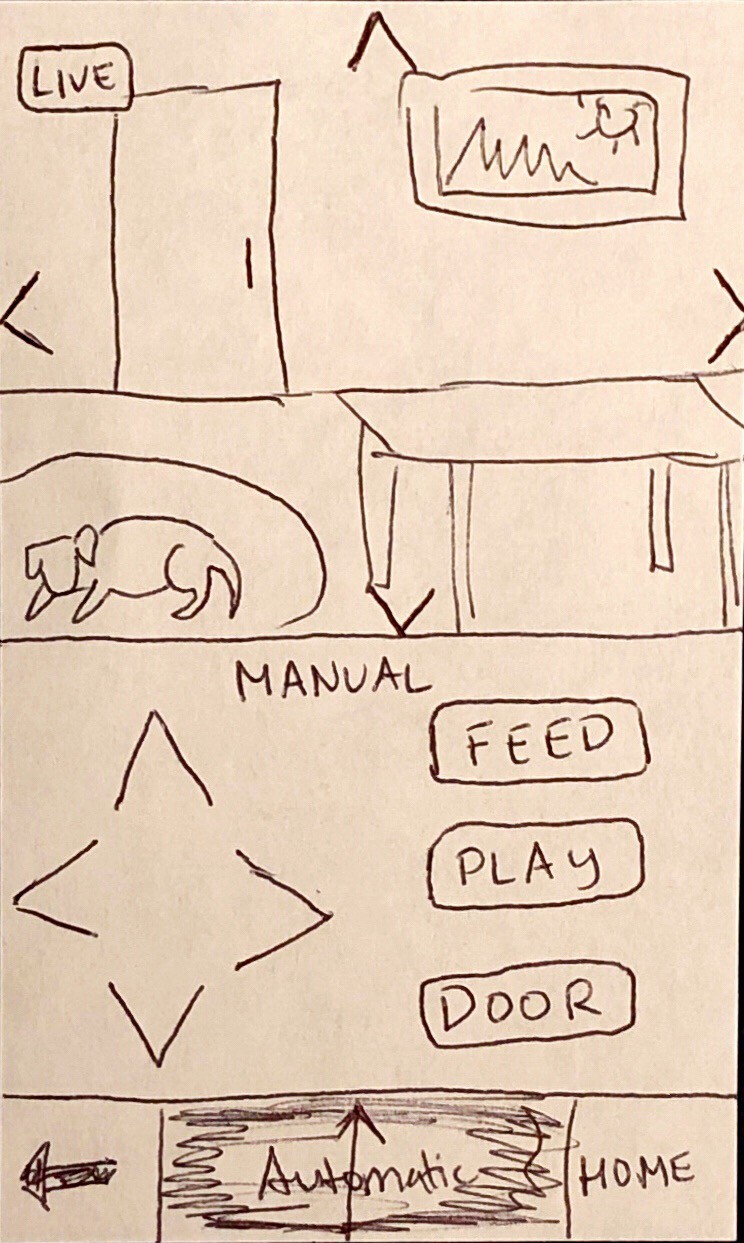 LIVE
MANUAL
FEED
PLAY
DOOR
Automatic
HOME